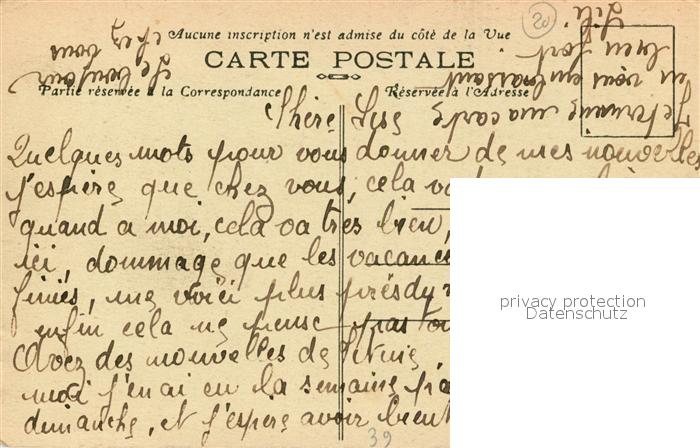 20
Aucune inscription n'est admise du côté de la Vue
CARTE POSTALE
Partie réservée à la Correspondance
Réservée à l'Adresse
Chère Lise
Quelques mots pour vous donner de mes nouvelles
j'espère que chez vous, cela va
quand a moi, cela va très bien,
ici, dommage que les vacances
finies, me voici plus près
enfin cela ne pense pas
Avez des nouvelles de
moi j'en ai eu la semaine
dimanche, et j'espère avoir
39
Je termine ma carte
en vous embrassant
bien fort
Lili
le bonjour
chez vous
privacy protection
Datenschutz